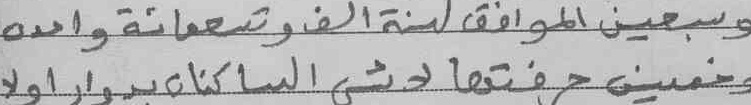 وسبعين الموافق لسنة الف وتسعمائة واحده
وخمسين حرفتها لا شي الساكنان بدوار اولا